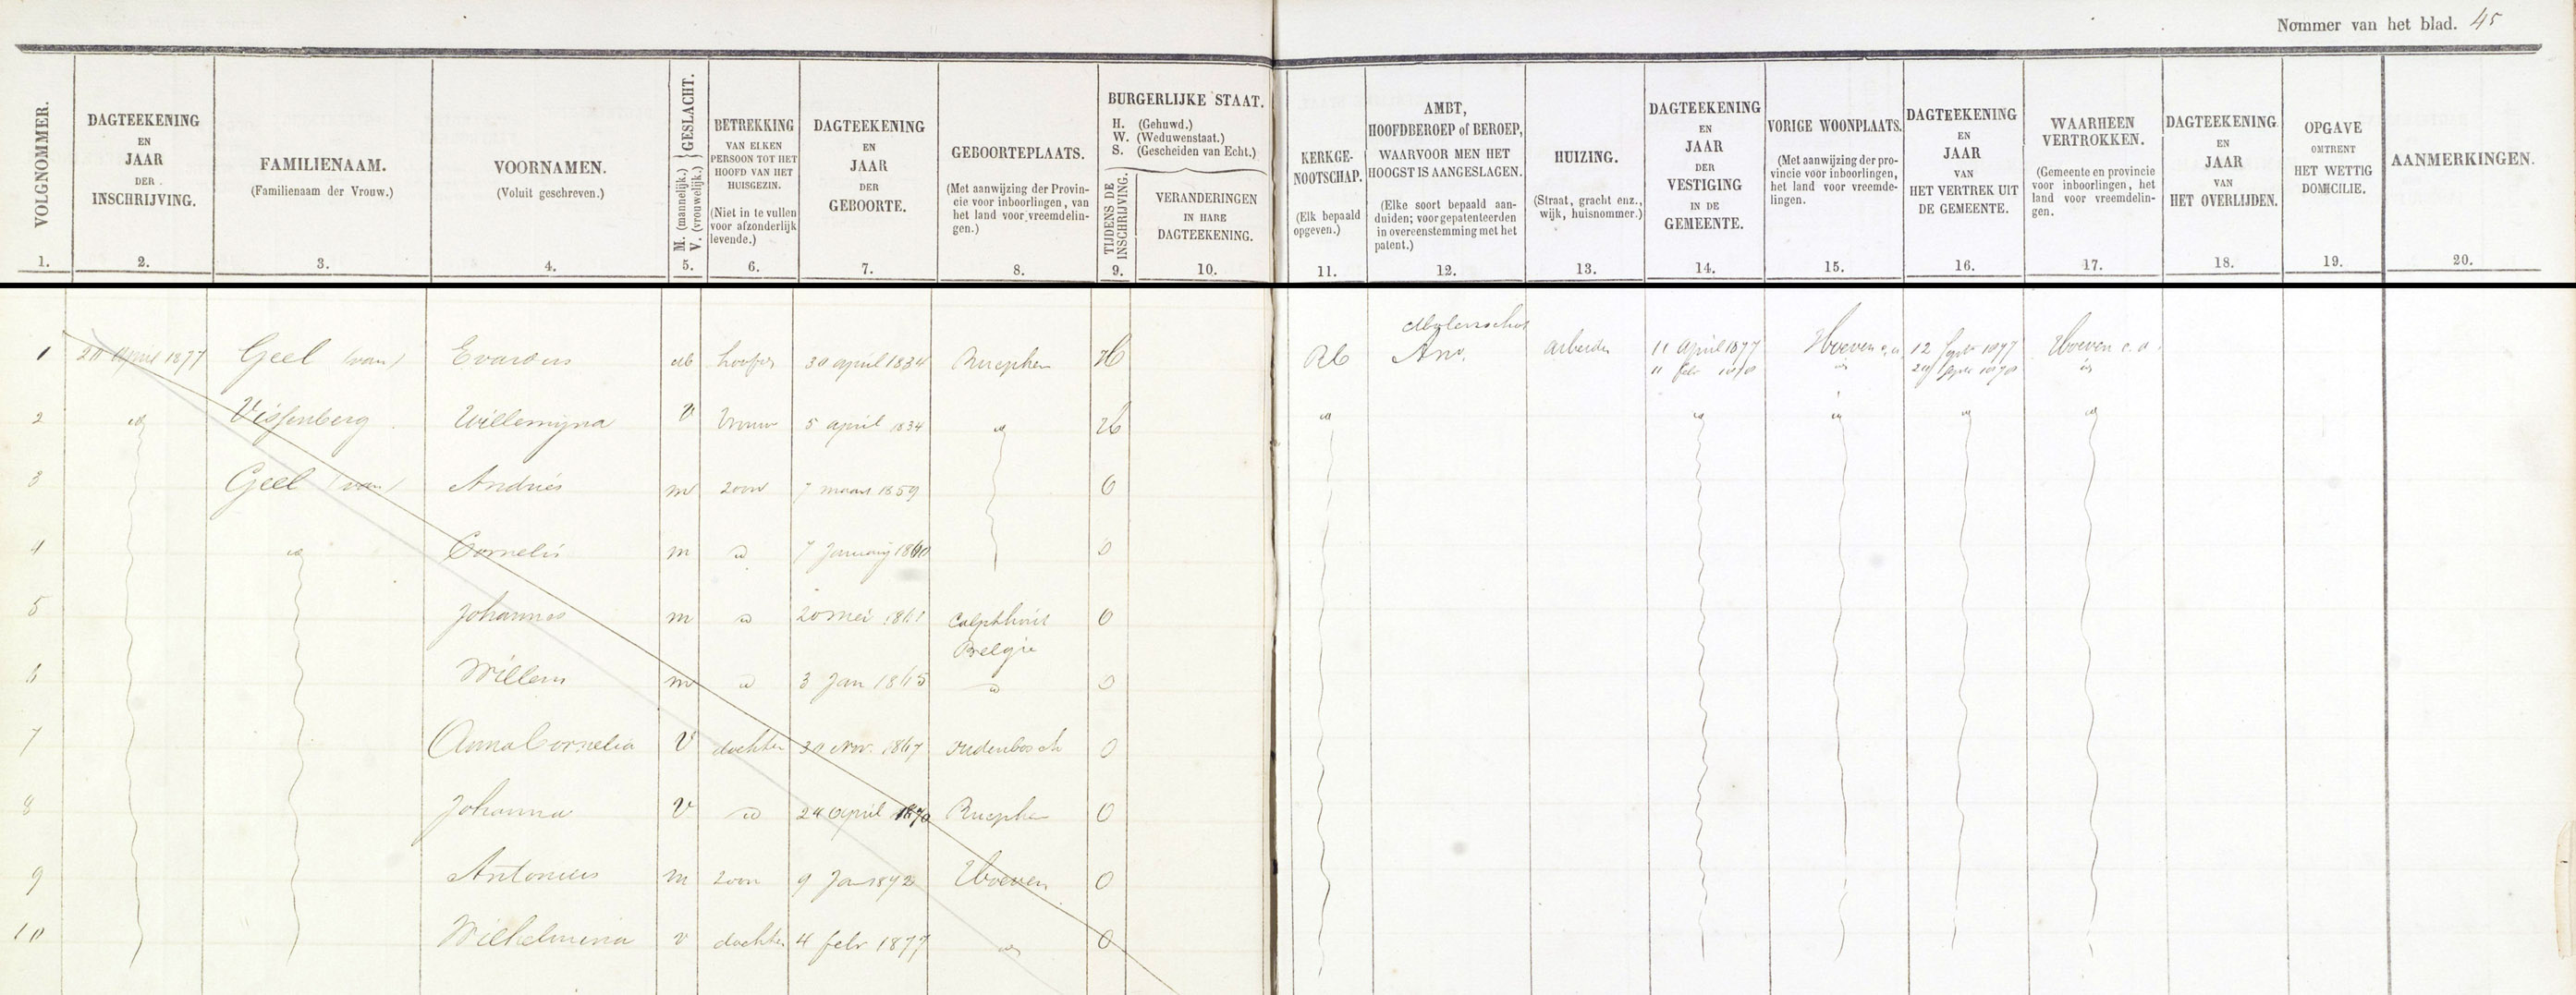 Nommer van het blad. 45
VOLGNOMMER.
1.
DAGTEEKENING
EN
JAAR
DER
INSCHRIJVING.
2.
FAMILIENAAM.
(Familienaam der Vrouw.)
3.
VOORNAMEN.
(Voluit geschreven.)
4.
GESLACHT.
M. (mannelijk.)
V. (vrouwelijk.)
5.
BETREKKING
VAN ELKEN
PERSOON TOT HET
HOOFD VAN HET
HUISGEZIN.
(Niet in te vullen
voor afzonderlijk
levende.)
6.
DAGTEEKENING
EN
JAAR
DER
GEBOORTE.
7.
GEBOORTEPLAATS.
(Met aanwijzing der Provin-
cie voor inboorlingen, van
het land voor vreemdelin-
gen.)
8.
BURGERLIJKE STAAT.
H. (Gehuwd.)
W. (Weduwenstaat.)
S. (Gescheiden van Echt.)
TIJDENS DE
INSCHRIJVING.
9.
VERANDERINGEN
IN HARE
DAGTEEKENING.
10.
KERKGE-
NOOTSCHAP.
(Elk bepaald
opgeven.)
11.
AMBT,
HOOFDBEROEP of BEROEP,
WAARVOOR MEN HET
HOOGST IS AANGESLAGEN.
(Elke soort bepaald aan-
duiden; voor gepatenteerden
in overeenstemming met het
patent.)
12.
HUIZING.
(Straat, gracht enz.,
wijk, huisnommer.)
13.
DAGTEEKENING
EN
JAAR
DER
VESTIGING
IN DE
GEMEENTE.
14.
VORIGE WOONPLAATS.
(Met aanwijzing der pro-
vincie voor inboorlingen,
het land voor vreemde-
lingen.
15.
DAGTEEKENING
EN
JAAR
VAN
HET VERTREK UIT
DE GEMEENTE.
16.
WAARHEEN
VERTROKKEN.
(Gemeente en provincie
voor inboorlingen, het
land voor vreemdelin-
gen.
17.
DAGTEEKENING
EN
JAAR
VAN
HET OVERLIJDEN.
18.
OPGAVE
OMTRENT
HET WETTIG
DOMICILIE.
19.
AANMERKINGEN.
20.
Molenschot
1 april 1877 Geel (van) Evardus M hoofd 30 april 1834 Rucphen H RC arbeider 11 april 1877 Hoeven 12 1877 Hoeven
11 febr id id
2 id Vissenberg Willemijna V Vrouw 5 april 1834 id H id id id id id
3 Geel (van) Andries m zoon 7 maart 1859 O
4 id Cornelis m id 7 January 1860 O
5 Johannes m id 20 mei 1861 Calpthout O
België
6 Willem m id 3 Jan 1865 id O
7 Anna Cornelia V dochter 30 nov. 1867 oudenbosch O
8 Johanna V id april 1870 Rucphen O
9 Antonius m zoon 9 Jan Hoeven O
10 Wilhelmina v dochter 4 febr 1877 id O